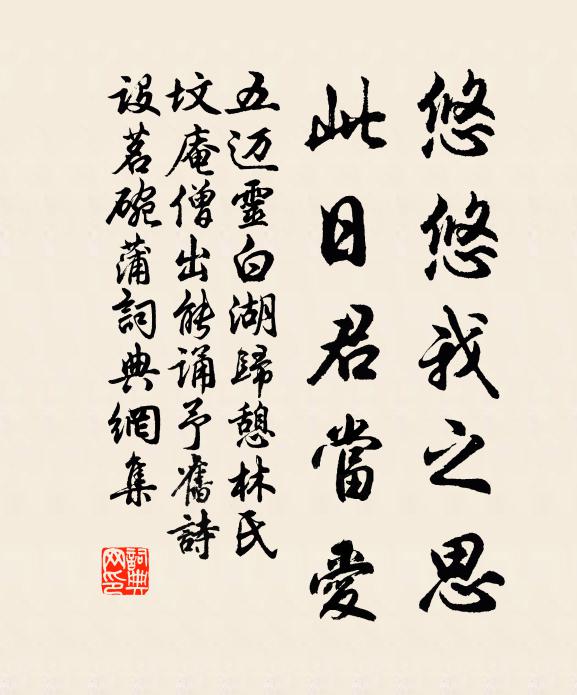 悠悠我之思
此日君當愛
五迈靈白湖歸憩林氏
坟庵僧出能诵予舊詩
设茗碗蒲詞典網集
詞典网印